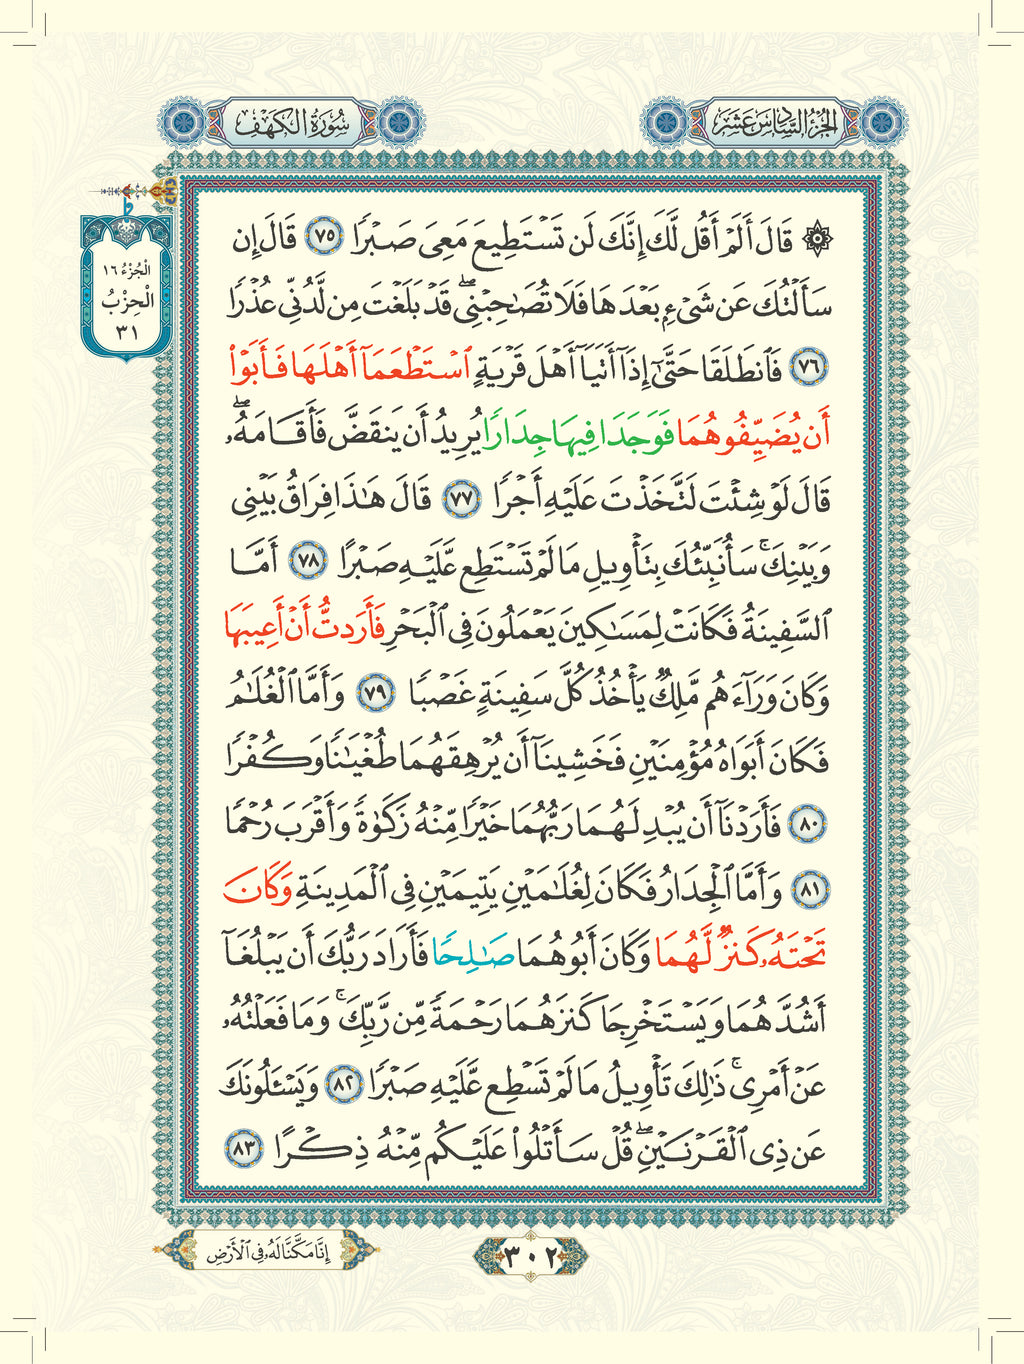 الجُزْءُ السَّادِسَ عَشَرَ
سُورَةُ الكَهْفِ
الْجُزْءُ ١٦
الْحِزْبُ
٣١
۞ قَالَ أَلَمْ أَقُل لَّكَ إِنَّكَ لَن تَسْتَطِيعَ مَعِىَ صَبْرًا ٧٥ قَالَ إِن
سَأَلْتُكَ عَن شَىْءٍۭ بَعْدَهَا فَلَا تُصَـٰحِبْنِىۖ قَدْ بَلَغْتَ مِن لَّدُنِّى عُذْرًا
٧٦ فَٱنطَلَقَا حَتَّىٰٓ إِذَآ أَتَيَآ أَهْلَ قَرْيَةٍ ٱسْتَطْعَمَآ أَهْلَهَا فَأَبَوْا۟
أَن يُضَيِّفُوهُمَا فَوَجَدَا فِيهَا جِدَارًا يُرِيدُ أَن يَنقَضَّ فَأَقَامَهُۥۖ
قَالَ لَوْ شِئْتَ لَتَّخَذْتَ عَلَيْهِ أَجْرًا ٧٧ قَالَ هَـٰذَا فِرَاقُ بَيْنِى
وَبَيْنِكَۚ سَأُنَبِّئُكَ بِتَأْوِيلِ مَا لَمْ تَسْتَطِع عَّلَيْهِ صَبْرًا ٧٨ أَمَّا
ٱلسَّفِينَةُ فَكَانَتْ لِمَسَـٰكِينَ يَعْمَلُونَ فِى ٱلْبَحْرِ فَأَرَدتُّ أَنْ أَعِيبَهَا
وَكَانَ وَرَآءَهُم مَّلِكٌ يَأْخُذُ كُلَّ سَفِينَةٍ غَصْبًا ٧٩ وَأَمَّا ٱلْغُلَـٰمُ
فَكَانَ أَبَوَاهُ مُؤْمِنَيْنِ فَخَشِينَآ أَن يُرْهِقَهُمَا طُغْيَـٰنًا وَكُفْرًا
٨٠ فَأَرَدْنَآ أَن يُبْدِلَهُمَا رَبُّهُمَا خَيْرًا مِّنْهُ زَكَوٰةً وَأَقْرَبَ رُحْمًا
٨١ وَأَمَّا ٱلْجِدَارُ فَكَانَ لِغُلَـٰمَيْنِ يَتِيمَيْنِ فِى ٱلْمَدِينَةِ وَكَانَ
تَحْتَهُۥ كَنزٌ لَّهُمَا وَكَانَ أَبُوهُمَا صَـٰلِحًا فَأَرَادَ رَبُّكَ أَن يَبْلُغَآ
أَشُدَّهُمَا وَيَسْتَخْرِجَا كَنزَهُمَا رَحْمَةً مِّن رَّبِّكَۚ وَمَا فَعَلْتُهُۥ
عَنْ أَمْرِىۚ ذَٰلِكَ تَأْوِيلُ مَا لَمْ تَسْطِع عَّلَيْهِ صَبْرًا ٨٢ وَيَسْـَٔلُونَكَ
عَن ذِى ٱلْقَرْنَيْنِۖ قُلْ سَأَتْلُوا۟ عَلَيْكُم مِّنْهُ ذِكْرًا ٨٣
٣٠٢
إِنَّا مَكَّنَّا لَهُۥ فِى ٱلْأَرْضِ